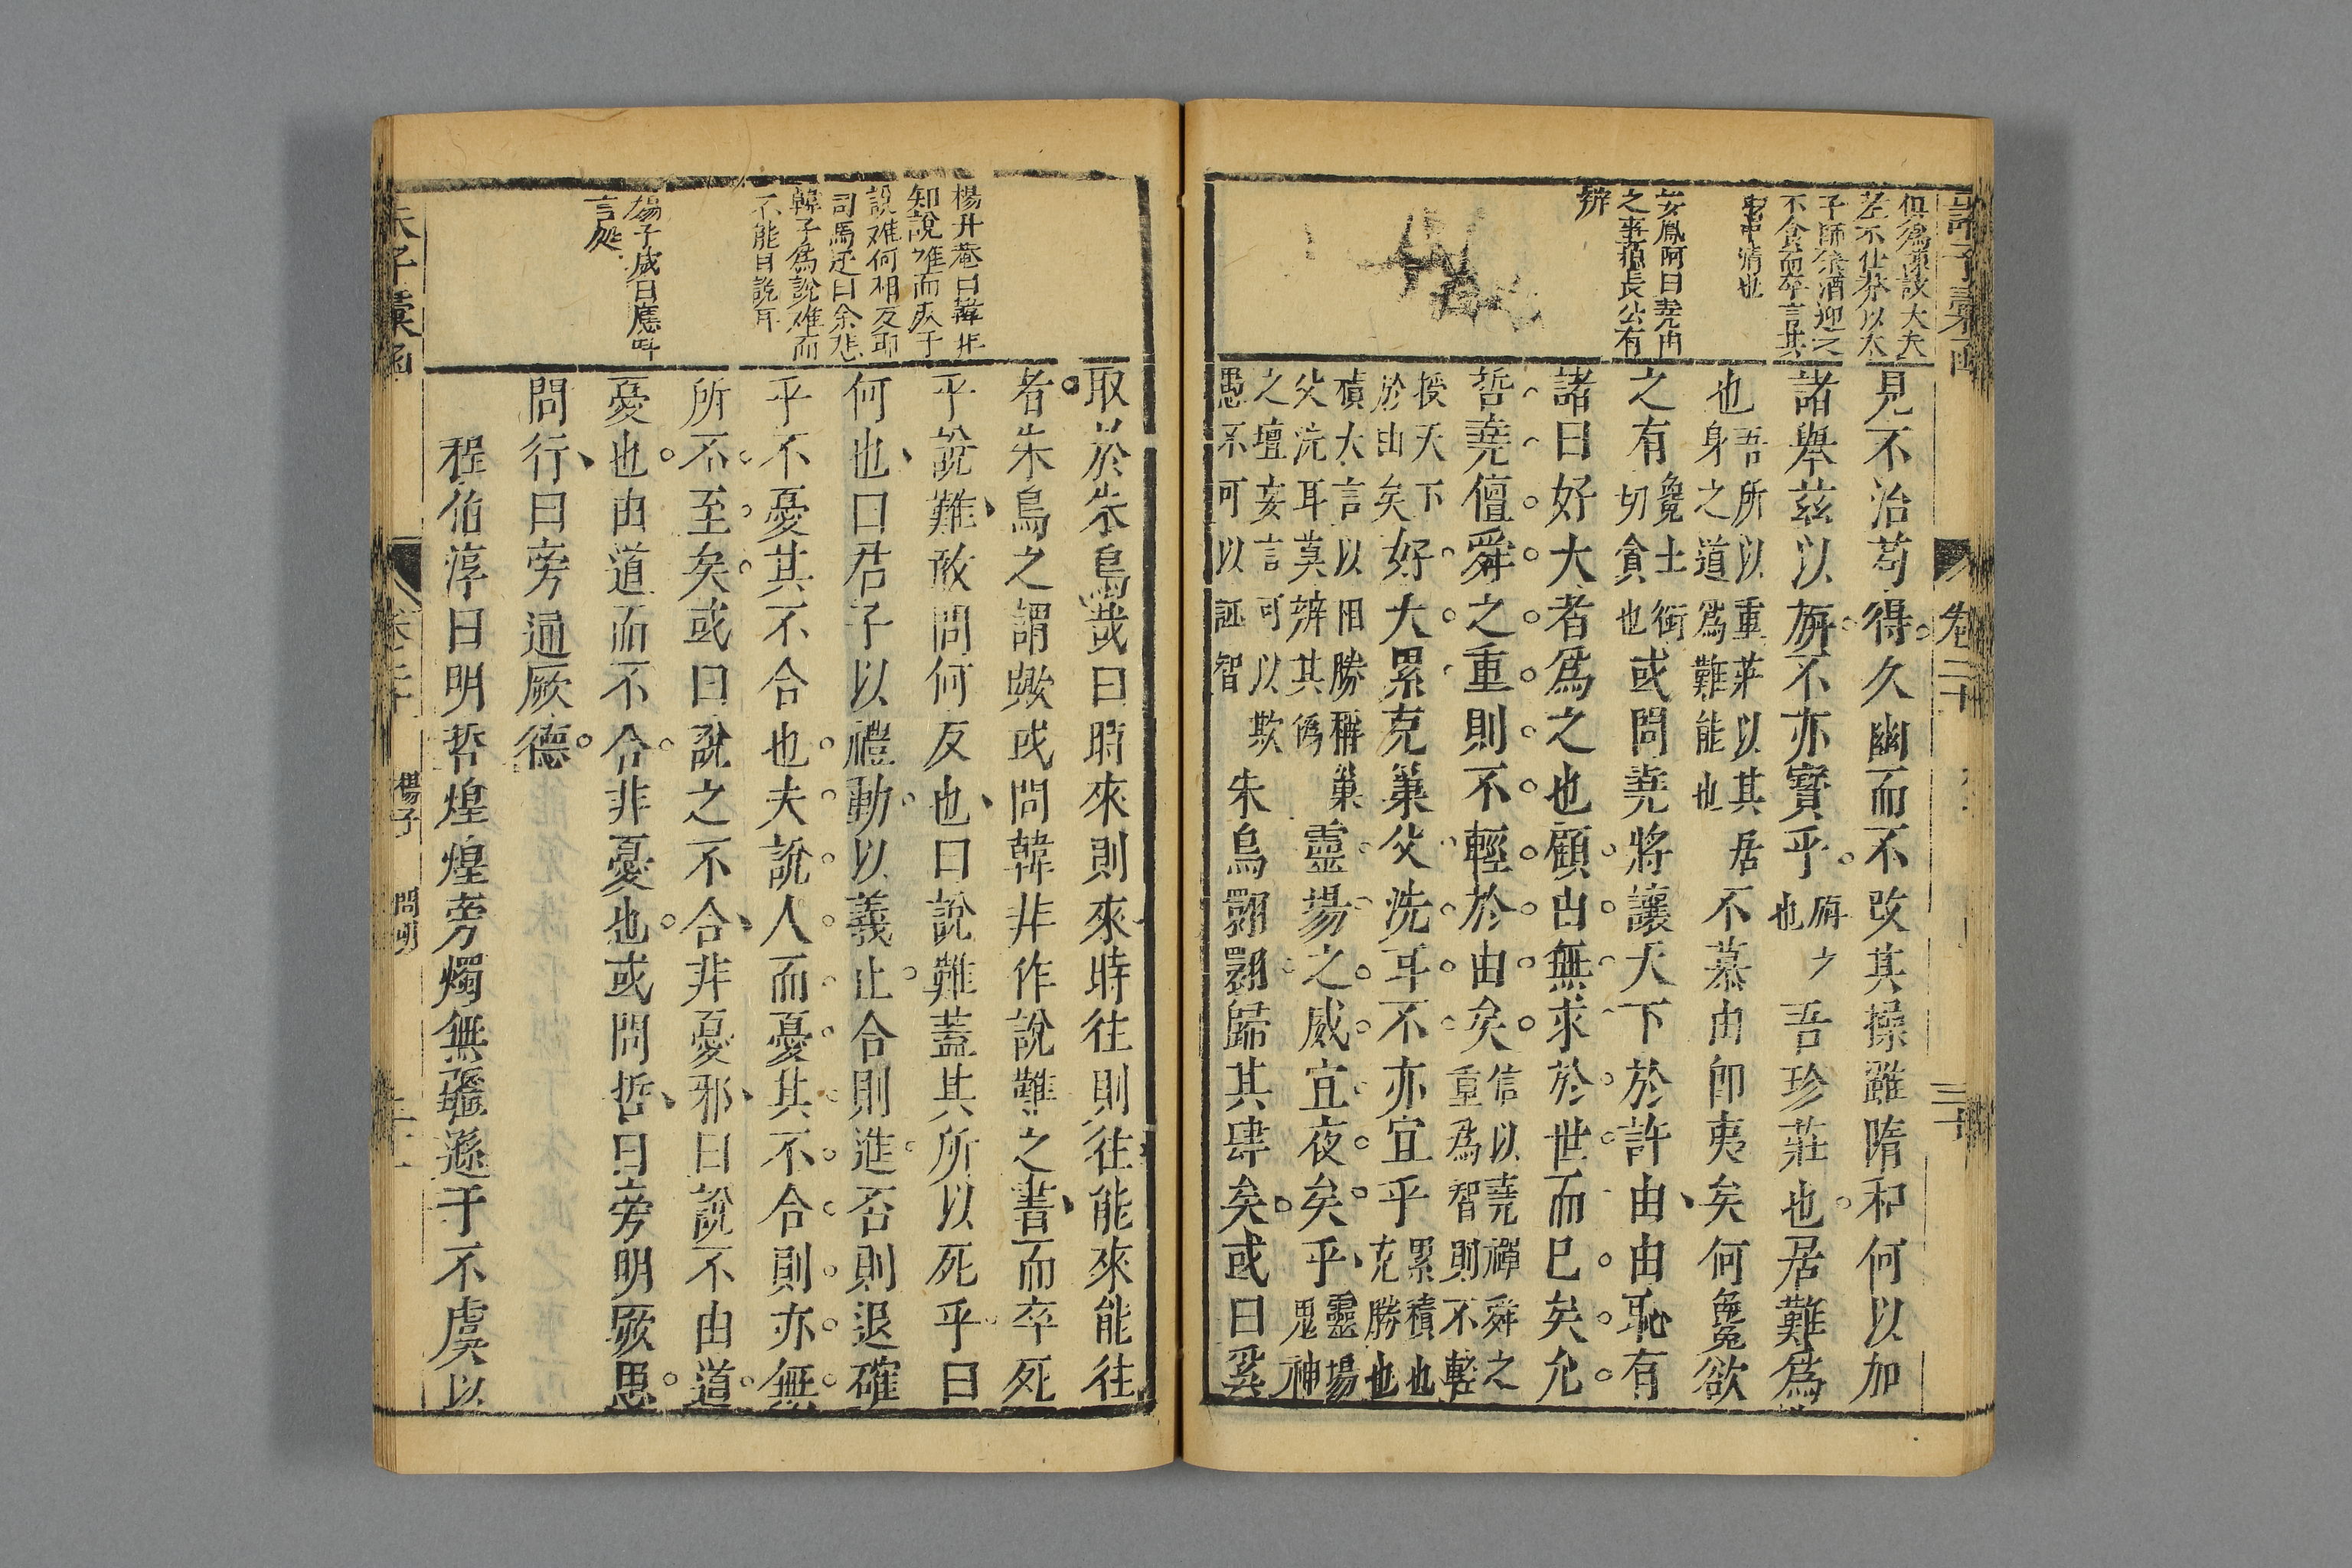 諸子彙函
卷二十
三十
俱爲諫議大夫
莽不仕莽以太
子師祭酒迎之
不食而卒言其
清也
安鳳阿曰堯由
之事蘓長公有
辨
見不治苟得久幽而不改其操雖隋和何以加
諸舉茲以旃不亦寳乎旃之也吾珍莊也居難爲
也吾所以重莊以其居身之道爲難能也不慕由卽夷矣何毚欲
之有毚士銜切貪也或問堯將讓天下於許由由恥有
諸曰好大者爲之也顧由無求於世而已矣允
哲堯儃舜之重則不輕於由矣信以堯禪舜之重爲智則不輕
授天下於由矣好大累克巢父洗耳不亦宜乎累積也克勝也
積大言以相勝稱巢父洗耳莫辨其僞靈場之威宜夜矣乎靈場鬼神
之壇妄言可以欺愚不可以誣智朱鳥翾翾歸其肆矣或曰奚
取於朱鳥哉曰時來則來時往則往能來能往
者朱鳥之謂歟或問韓非作說難之書而卒死
乎說難敢問何反也曰說難蓋其所以死乎曰
何也曰君子以禮動以義止合則進否則退確
乎不憂其不合也夫說人而憂其不合則亦無
所不至矣或曰說之不合非憂邪曰說不由道
憂也由道而不合非憂也或問哲曰旁明厥思
問行曰旁通厥德
程伯淳曰明哲煌煌旁燭無疆遜于不虞以
楊升菴曰韓非
知說难而疾于
說难何相反耶
司馬迁曰余悲
韓子爲說难而
不能自脫耳
楊子咸曰應時
言処
楊子
問明